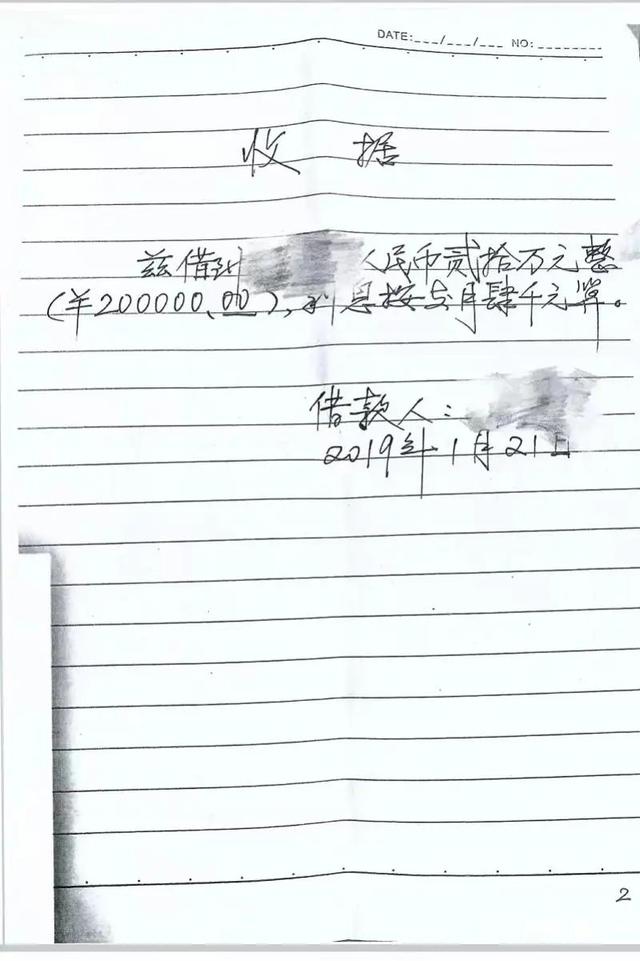 DATE:___/___/___ NO:________
收 据
兹借到 人民币贰拾万元整
(￥200000.00),利息按每月肆千元算。
借款人:
2019年1月21日
2